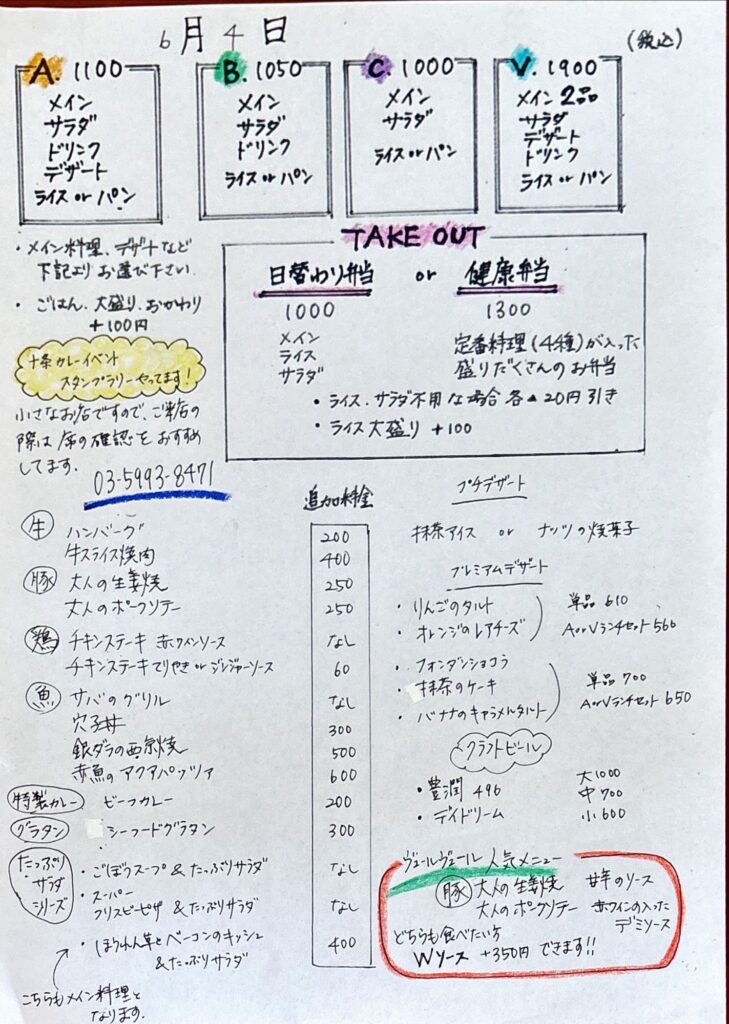 6月4日
(税込)
A. 1100
メイン
サラダ
ドリンク
デザート
ライス or パン
B. 1050
メイン
サラダ
ドリンク
ライス or パン
C. 1000
メイン
サラダ
ライス or パン
V. 1900
メイン 2品
サラダ
デザート
ドリンク
ライス or パン
・メイン料理、デザートなど
下記よりお選び下さい
・ごはん、大盛り、おかわり
+100円
十条カレーイベント
スタンプラリーやってます!
小さなお店ですので、ご来店の
際は席の確認をおすすめ
してます.
03-5993-8471
TAKE OUT
日替わり弁当 or 健康弁当
1000
メイン
ライス
サラダ
1300
定番料理(4種)が入った
盛りだくさんのお弁当
・ライス、サラダ不用な場合 各▲20円引き
・ライス大盛り +100
追加料金
牛 ハンバーグ 200
牛スライス焼肉 400
豚 大人の生姜焼 250
大人のポークソテー 250
鶏 チキンステーキ 赤ワインソース なし
チキンステーキ てりやき or ジンジャーソース 60
魚 サバのグリル なし
穴子丼 300
銀ダラの西京焼 500
赤魚のアクアパッツァ 600
特製カレー ビーフカレー 200
グラタン シーフードグラタン 300
たっぷり
サラダ
シリーズ
・ごぼうスープ & たっぷりサラダ なし
・スーパー
クリスピーピザ & たっぷりサラダ なし
・ほうれん草とベーコンのキッシュ
&たっぷりサラダ 400
こちらもメイン料理と
なります.
プチデザート
抹茶アイス or ナッツの焼菓子
プレミアムデザート
・りんごのタルト
・オレンジのレアチーズ
単品 610
AorVランチセット 560
・フォンダンショコラ
・抹茶のケーキ
・バナナのキャラメルタルト
単品 700
AorVランチセット 650
クラフトビール
・豊潤 496
・デイドリーム
大1000
中700
小600
ヴェールヴェール 人気メニュー
豚 大人の生姜焼 甘辛のソース
大人のポークソテー 赤ワインの入った
デミソース
どちらも食べたい方
Wソース +350円 できます!!